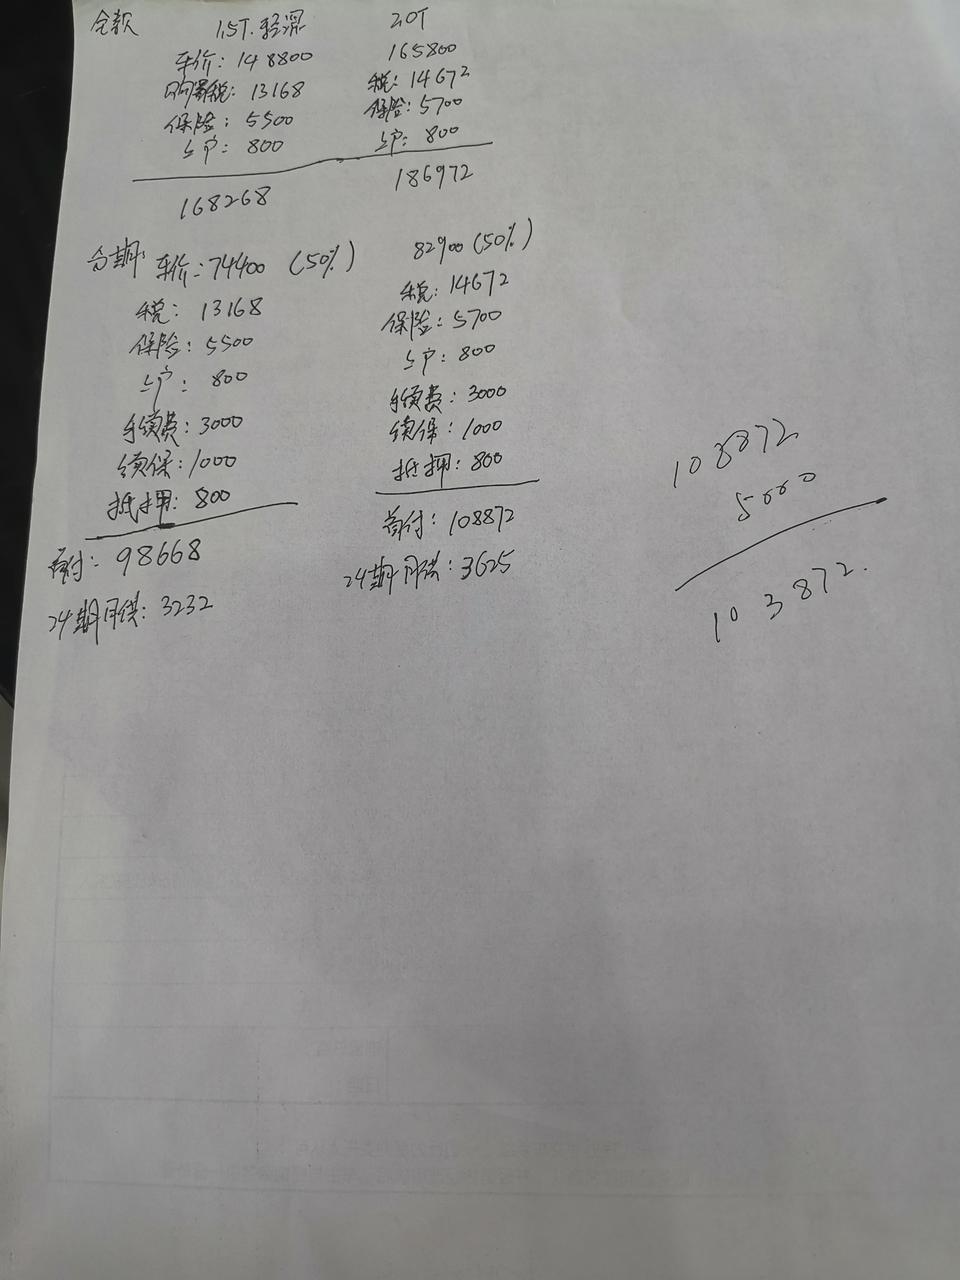 全款 1.5T.轻混 2.0T
车价: 148800 165800
购置税: 13168 税: 14672
保险: 5500 保险: 5700
上户: 800 上户: 800
168268 186972
分期: 车价: 74400 (50%) 82900 (50%)
税: 13168 税: 14672
保险: 5500 保险: 5700
上户: 800 上户: 800
手续费: 3000 手续费: 3000
续保: 1000 续保: 1000
抵押: 800 抵押: 800
首付: 98668 首付: 108872
24期月供: 3232 24期月供: 3625
108872
5000
103872.